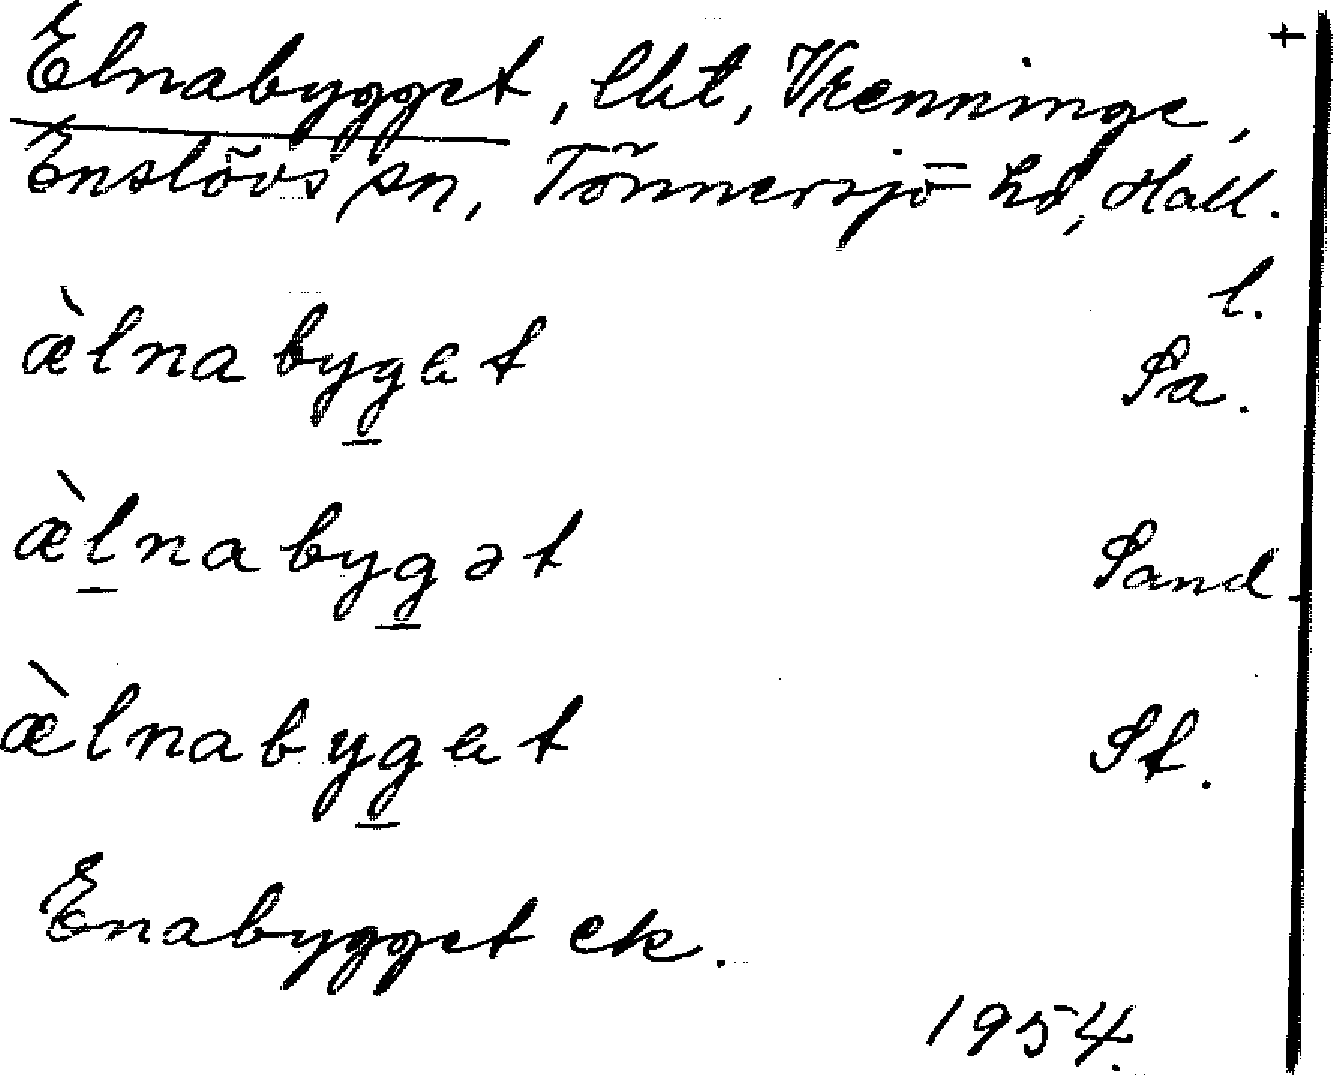 +
Elnabygget, lht, Vrenninge,
Enslövs sn, Tönnersjö hd, Hall.
l.
æ̀lnabyg̲et Sa.
æ̀l̲nabyg̲ət Sand.
æ̀lnabyg̲et St.
Enabygget ek.
1954.